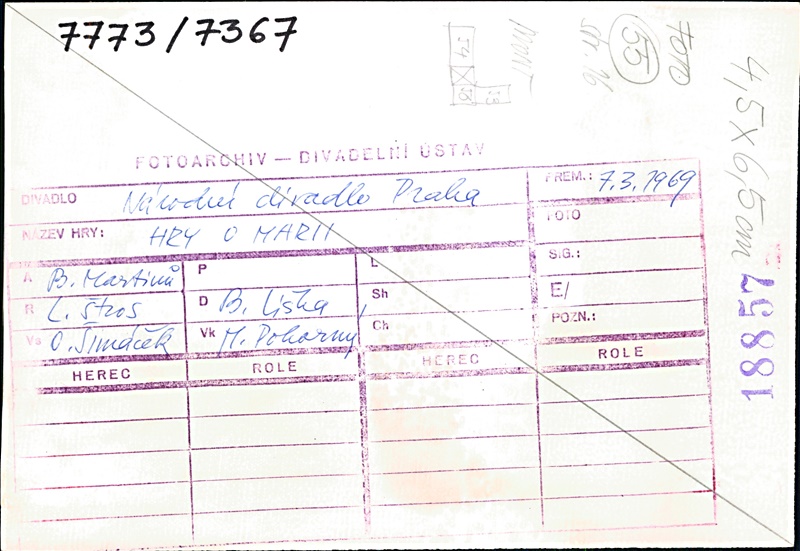 7773/7367
FOTO
55
str. 96
4,5 x 6,5 cm
18857
FOTOARCHIV — DIVADELNÍ ÚSTAV
DIVADLO Národní divadlo Praha PREM.: 7.3.1969
NÁZEV HRY: HRY O MARII FOTO
A B. Martinů P L SIG.:
R L. Štros D B. Liška, Sh E/
Vs O. Šimáček Vk M. Pokorný Ch POZN.:
HEREC ROLE HEREC ROLE